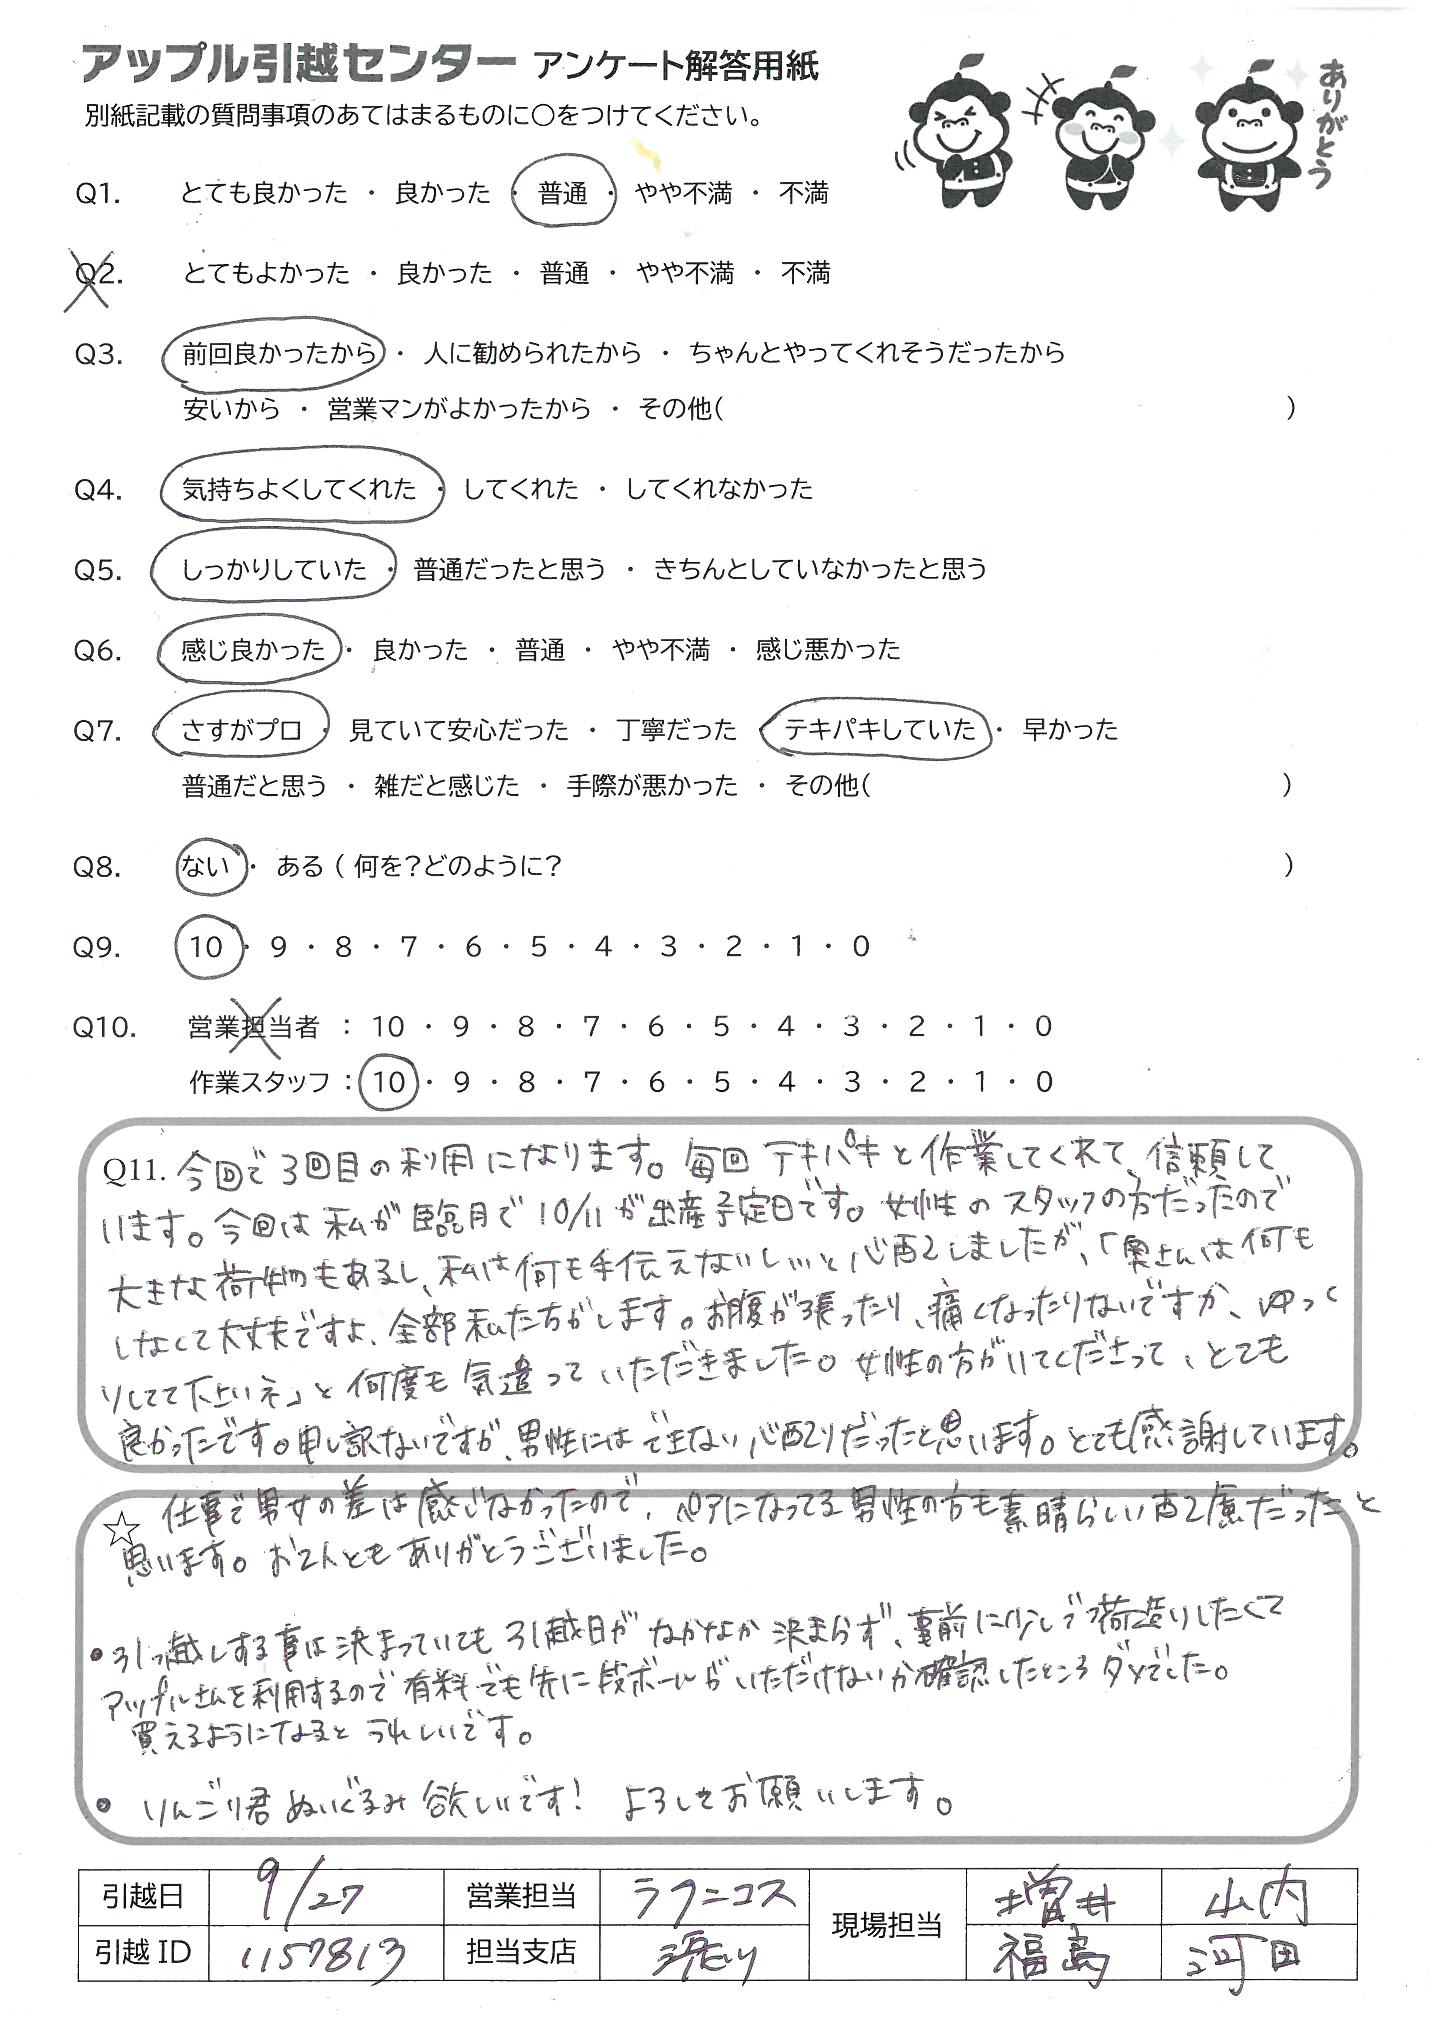 アップル引越センター アンケート解答用紙
ありがとう
別紙記載の質問事項のあてはまるものに〇をつけてください。
Q1. とても良かった ・ 良かった ・ 普通 ・ やや不満 ・ 不満
Q2. とてもよかった ・ 良かった ・ 普通 ・ やや不満 ・ 不満
Q3. 前回良かったから ・ 人に勧められたから ・ ちゃんとやってくれそうだったから
安いから ・ 営業マンがよかったから ・ その他( )
Q4. 気持ちよくしてくれた ・ してくれた ・ してくれなかった
Q5. しっかりしていた ・ 普通だったと思う ・ きちんとしていなかったと思う
Q6. 感じ良かった ・ 良かった ・ 普通 ・ やや不満 ・ 感じ悪かった
Q7. さすがプロ ・ 見ていて安心だった ・ 丁寧だった テキパキしていた ・ 早かった
普通だと思う ・ 雑だと感じた ・ 手際が悪かった ・ その他( )
Q8. ない ・ ある ( 何を?どのように? )
Q9. 10 ・ 9 ・ 8 ・ 7 ・ 6 ・ 5 ・ 4 ・ 3 ・ 2 ・ 1 ・ 0
Q10. 営業担当者 : 10 ・ 9 ・ 8 ・ 7 ・ 6 ・ 5 ・ 4 ・ 3 ・ 2 ・ 1 ・ 0
作業スタッフ : 10 ・ 9 ・ 8 ・ 7 ・ 6 ・ 5 ・ 4 ・ 3 ・ 2 ・ 1 ・ 0
Q11. 今回で3回目の利用になります。毎回テキパキと作業してくれて、信頼して
います。今回は私が臨月で10/11が出産予定日です。女性のスタッフの方だったので
大きな荷物もあるし、私は何も手伝えないし…と心配しましたが、「奥さんは何も
しなくて大丈夫ですよ、全部私たちがします。お腹が張ったり、痛くなったりないですか、ゆっく
りしてて下さいネ」と何度も気遣っていただきました。女性の方がいてくださって、とても
良かったです。申し訳ないですが、男性にはできない心配りだったと思います。とても感謝しています。
☆ 仕事で男女の差は感じなかったので、ペアになってる男性の方も素晴らしい配慮だったと
思います。お2人ともありがとうございました。
・引っ越しする事は決まっていても引越日がなかなか決まらず、事前に少しづつ荷造りしたくて
アップルさんを利用するので有料でも先に段ボールがいただけないか確認したところダメでした。
買えるようになるとうれしいです。
・りんごり君ぬいぐるみ欲しいです! よろしくお願いします。
引越日 9/27 営業担当 ラクニコス 現場担当 増井 山内
引越ID 1157813 担当支店 福島 河田